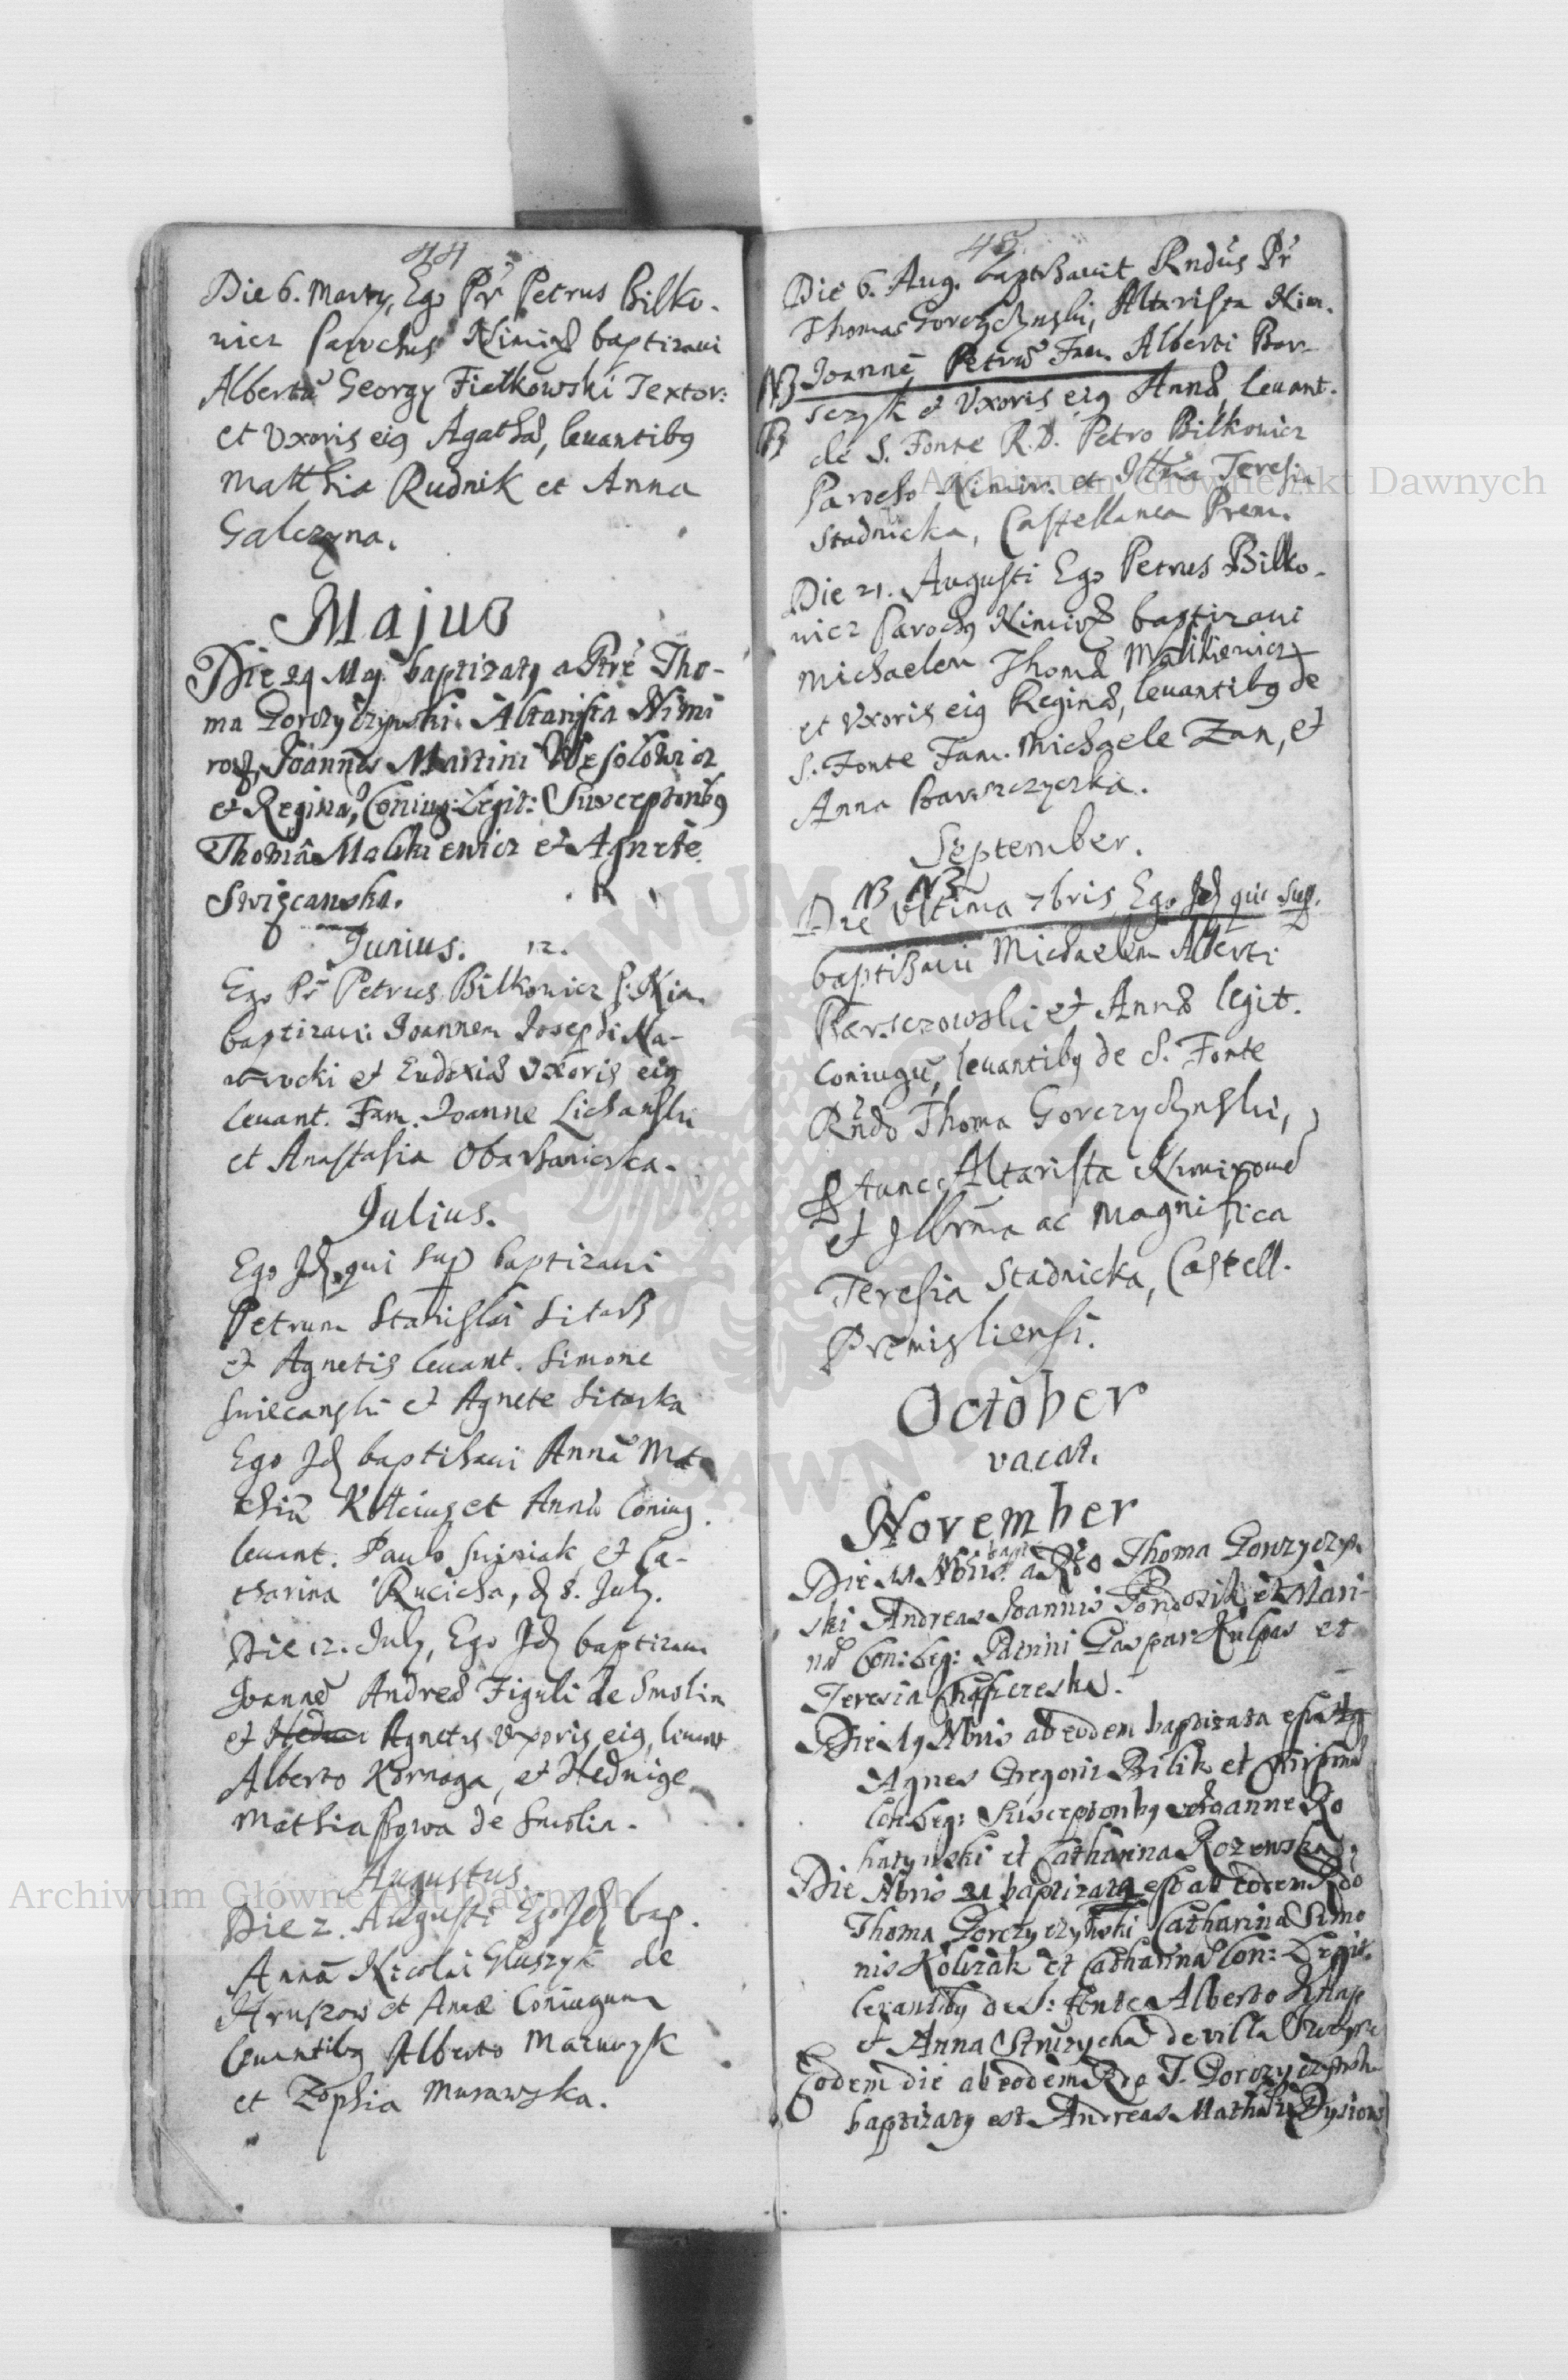 44
Die 6. Marty, Ego Pr Petrus Bilko-
wicz Parochus Nimir baptizavi
Albertu Georgy Fielkowski Textor:
et Vxoris eiq Agatha, levantibq
Matthia Rudnik et Anna
Galczyna.
Majus
Die 29 Maj. baptizatq a Ptre Tho-
ma Gorczyczynski Altarista Nimi
rov, Joannes Martini Wesolowicz
et Regina, Coniug: Legit: Susceptoribq
Thoma Malikiewicz et Agnete
Swięcanska.
Junius. 12.
Ego Pr Petrus Bilkowicz P. Nim.
baptizavi Joannem Josephi Na-
wrocki et Eudoxia Vxoris eiq
levant. Fam. Joanne Lichanski
et Anastasia Obarzanicska.
Julius.
Ego Jd qui sup baptizavi
Petrum Stanislai Sitarz
et Agnetis levant. Simone
Swiecanski et Agnete Sitarska
Ego Jd baptisavi Anna Mat
thia et Anna Coniug.
levant. Paulo et Ca-
tharina Rucicha, d 8. July.
Die 12. July, Ego Jd baptizavi
Joanne Andrea Figuli de Smolin
et Agnetis Vxoris eiq, levant
Alberto Kornaga, et Hedvige
Mathia de Smolin.
Augustus.
Die 2. Augusti Ego Jd bap.
Anna Nicolai Gluszyk de
Hruszow et Annæ Coniugum
levantibq Alberto Mazurzyk
et Zophia Murawska.
45
Die 6. Aug. baptisavit Rndus Pr
Thomas Gorczyczynski, Altarista Nim.
NB Joanne Petru Fam. Alberti Bar-
sczyk et Vxoris eiq Anna, levant.
de S. Fonte R.D. Petro Bilkowicz
Parocho Nimir. et Illma Teresia
Stadnicka, Castellanea Prem.
Die 21. Augusti Ego Petrus Bilko-
wicz Parochq Nimir baptizavi
Michaelem Thoma Malikiewicz
et Vxoris eiq Regina, levantibq de
S. Fonte Fam. Michaele Zan, et
Anna Barszczycka.
September.
NB NB
Die Vltima 7bris, Ego Jd qui sup.
baptisavi Michaelem Alberti
Barsczowski et Anna legit.
Coniugu, levantibq de S. Fonte
Rndo Thoma Gorczyczynski,
tunc Altarista Nimirov
et Jllrma ac Magnifica
Teresia Stadnicka, Castell.
Premisliensi.
October
vacat.
November
Die 11 Nbris bapt a Rdo Thoma Gorczyczyn
ski Andreas Joannis et Mari-
na Con: leg: Patrini Gaspar Kulpas et
Teresia
Die 19 Nbris ab eodem baptizata est
Agnes Gregorii Bilik et
Con: leg: Susceptoribq Joanne Ro
hatynski et Catharina Rozenska
Die Nbris 21 baptizata est ab eodem Rdo
Thoma Gorczyczynski Catharina Simo
nis Kolczak et Catharina Con: Legit.
levantibq de S: Fonte Alberto Knap
et Anna Struzycha de villa
Eodem die ab eodem Rdo T. Gorczyczynski
baptizatq est Andreas Mathia
Archiwum Główne Akt Dawnych
Archiwum Główne Akt Dawnych